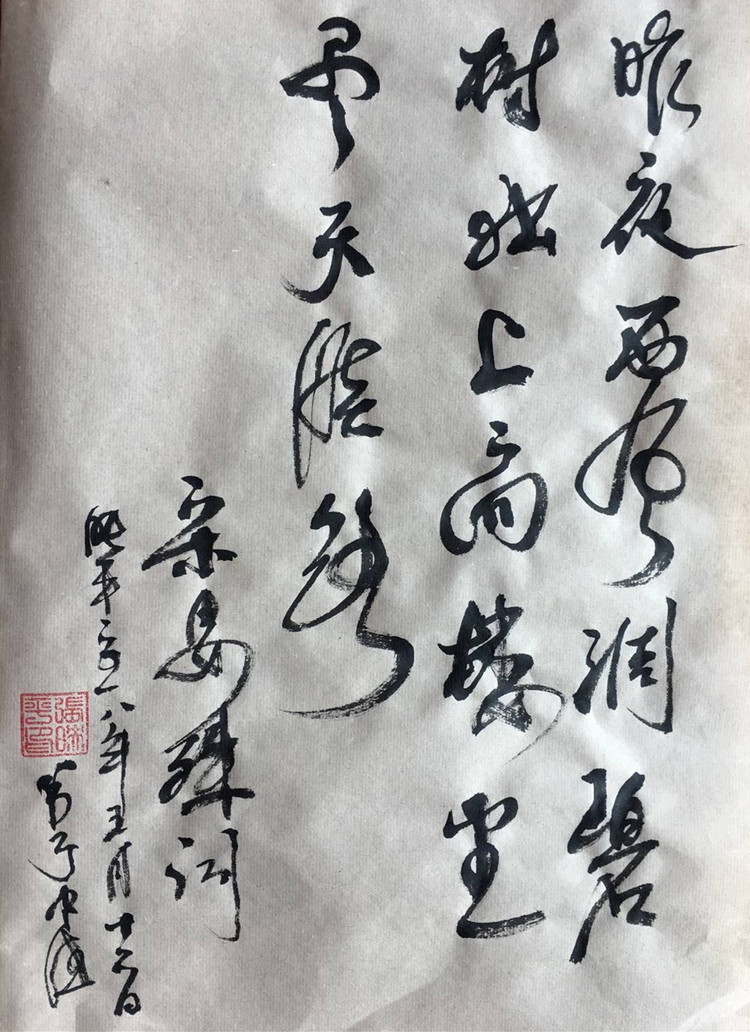 昨夜西风凋碧
树独上高楼望
尽天涯路
宋晏殊词
晓平二〇一八年五月十六日
书于